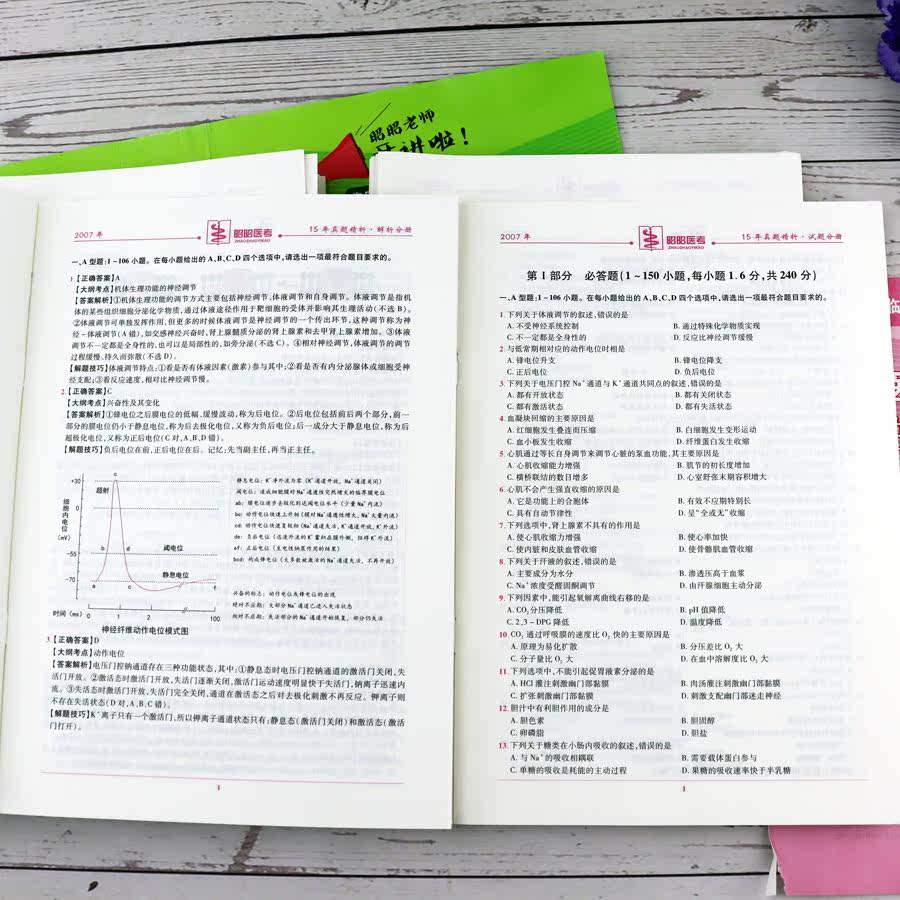 昭昭老师
开讲啦！
2007 年
昭昭医考
ZHAOZHAOYIKAO
15 年真题精析·解析分册
一、A 型题：1～106 小题。在每小题给出的 A、B、C、D 四个选项中，请选出一项最符合题目要求的。
1.【正确答案】A
【大纲考点】机体生理功能的神经调节
【答案解析】①机体生理功能的调节方式主要包括神经调节、体液调节和自身调节。体液调节是指机
体的某些组织细胞分泌化学物质，通过体液途径作用于靶细胞的受体并影响其生理活动（不选 B）。
②体液调节可单独发挥作用，但更多的时候体液调节是神经调节的一个传出环节，这种调节称为神
经-体液调节（A 错），如交感神经兴奋时，肾上腺髓质分泌的肾上腺素和去甲肾上腺素增加。③体液
调节不一定都是全身性的，也可以是局部性的，如旁分泌（不选 C）。④相对神经调节，体液调节的调节
过程缓慢、持久而弥散（不选 D）。
【解题技巧】体液调节特点：①看是否有体液因素（激素）参与其中；②看是否有内分泌腺体或细胞受神
经支配；③看反应速度，相对比神经调节慢。
2.【正确答案】C
【大纲考点】兴奋性及其变化
【答案解析】①锋电位之后膜电位的低幅、缓慢波动，称为后电位。②后电位包括前后两个部分，前一
部分的膜电位仍小于静息电位，称为后去极化电位，又称为负后电位；后一成分大于静息电位，称为后
超极化电位，又称为正后电位（C 对，A、B、D 错）。
【解题技巧】负后电位在前，正后电位在后。记忆：先当副主任，再当正主任。
细胞内电位(mV)
+30
0
-55
-70
超射
a
b
c
d
e
f
阈电位
静息电位
时间 (ms)
0
1
2
100
神经纤维动作电位模式图
静息电位：K⁺净外流为零（K⁺通道开放，Na⁺通道关闭）
阈电位：造成细胞膜对Na⁺通透性突然增大的临界膜电位
ab：膜电位逐步去极化到达阈电位水平（少量Na⁺内流）
bc：动作电位快速上升相（膜对Na⁺通透性增大，Na⁺大量内流）
cd：动作电位快速复极相（Na⁺通道失活，K⁺通道开放，K⁺外流）
de：负后电位（迅速外流的K⁺蓄积在膜外侧，阻碍K⁺外流）
ef：正后电位（生电性钠泵作用的结果）
bcd：构成锋电位（大多数被激活的Na⁺通道失活，不再开放）
兴奋的标志：动作电位或锋电位的出现
绝对不应期：大部分Na⁺通道已进入失活状态
相对不应期：失活部分的Na⁺通道开始恢复，部分仍失活
3.【正确答案】D
【大纲考点】动作电位
【答案解析】电压门控钠通道存在三种功能状态，其中：①静息态时电压门控钠通道的激活门关闭，失
活门开放。②激活态时激活门开放，失活门逐渐关闭，激活门运动速度明显快于失活门，钠离子迅速内
流。③失活态时激活门开放，失活门完全关闭，通道在激活态之后对去极化刺激不再反应。钾离子则
不存在失活状态（D 对，A、B、C 错）。
【解题技巧】K⁺离子只有一个激活门，所以钾离子通道状态只有：静息态（激活门关闭）和激活态（激活
门打开）。
1
2007 年
昭昭医考
ZHAOZHAOYIKAO
15 年真题精析·试题分册
第 1 部分 必答题（1～150 小题，每小题 1.6 分，共 240 分）
一、A 型题：1～106 小题。在每小题给出的 A、B、C、D 四个选项中，请选出一项最符合题目要求的。
1. 下列关于体液调节的叙述，错误的是
A. 不受神经系统控制 B. 通过特殊化学物质实现
C. 不一定都是全身性的 D. 反应比神经调节缓慢
2. 与低常期相对应的动作电位时相是
A. 锋电位升支 B. 锋电位降支
C. 正后电位 D. 负后电位
3. 下列关于电压门控 Na⁺通道与 K⁺通道共同点的叙述，错误的是
A. 都有开放状态 B. 都有关闭状态
C. 都有激活状态 D. 都有失活状态
4. 血凝块回缩的主要原因是
A. 红细胞发生叠连而压缩 B. 白细胞发生变形运动
C. 血小板发生收缩 D. 纤维蛋白发生收缩
5. 心肌通过等长自身调节来调节心脏的泵血功能，其主要原因是
A. 心肌收缩能力增强 B. 肌节的初长度增加
C. 横桥联结的数目增多 D. 心室舒张末期容积增大
6. 心肌不会产生强直收缩的原因是
A. 它是功能上的合胞体 B. 有效不应期特别长
C. 具有自动节律性 D. 呈“全或无”收缩
7. 下列选项中，肾上腺素不具有的作用是
A. 使心肌收缩力增强 B. 使心率加快
C. 使内脏和皮肤血管收缩 D. 使骨骼肌血管收缩
8. 下列关于汗液的叙述，错误的是
A. 主要成分为水分 B. 渗透压高于血浆
C. Na⁺浓度受醛固酮调节 D. 由汗腺细胞主动分泌
9. 下列因素中，能引起氧解离曲线右移的是
A. CO₂分压降低 B. pH 值降低
C. 2,3-DPG 降低 D. 温度降低
10. CO₂ 通过呼吸膜的速度比 O₂ 快的主要原因是
A. 原理为易化扩散 B. 分压差比 O₂ 大
C. 分子量比 O₂ 大 D. 在血中溶解度比 O₂ 大
11. 下列选项中，不能引起促胃液素分泌的是
A. HCl 灌注刺激幽门部黏膜 B. 肉汤灌注刺激幽门部黏膜
C. 扩张刺激幽门部黏膜 D. 刺激支配幽门部迷走神经
12. 胆汁中有利胆作用的成分是
A. 胆色素 B. 胆固醇
C. 卵磷脂 D. 胆盐
13. 下列关于糖类在小肠内吸收的叙述，错误的是
A. 与 Na⁺的吸收相耦联 B. 需要载体蛋白参与
C. 单糖的吸收是耗能的主动过程 D. 果糖的吸收速率快于半乳糖
1
临